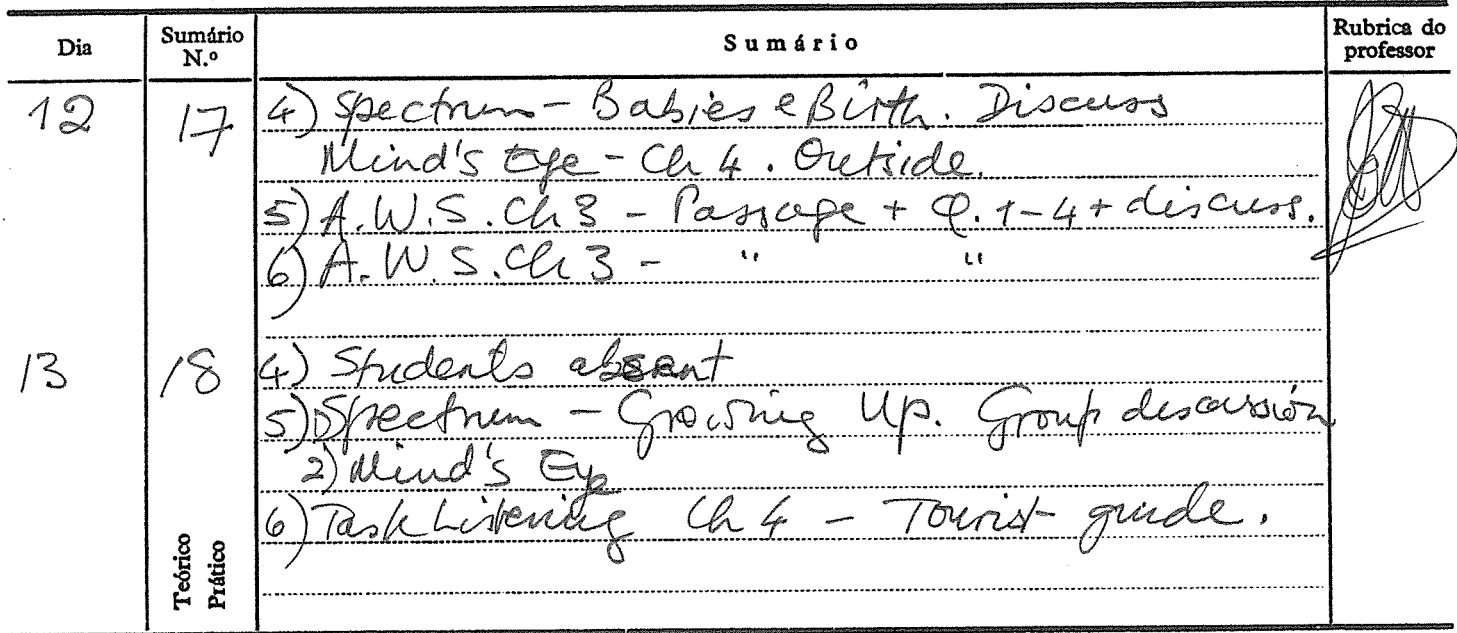 Dia Sumário N.º Sumário Rubrica do professor
12 17 4) Spectrum - Babies e Birth. Discuss
Mind's Eye - Ch 4. Outside.
5) A.W.S. Ch 3 - Passage + Q. 1-4 + discuss.
6) A.W.S. Ch 3 - " "
13 18 4) Students absent
5) 1) Spectrum - Growing Up. Group discussión
2) Mind's Eye
6) Task Listening Ch 4 - Tourist guide.
Teórico
Prático